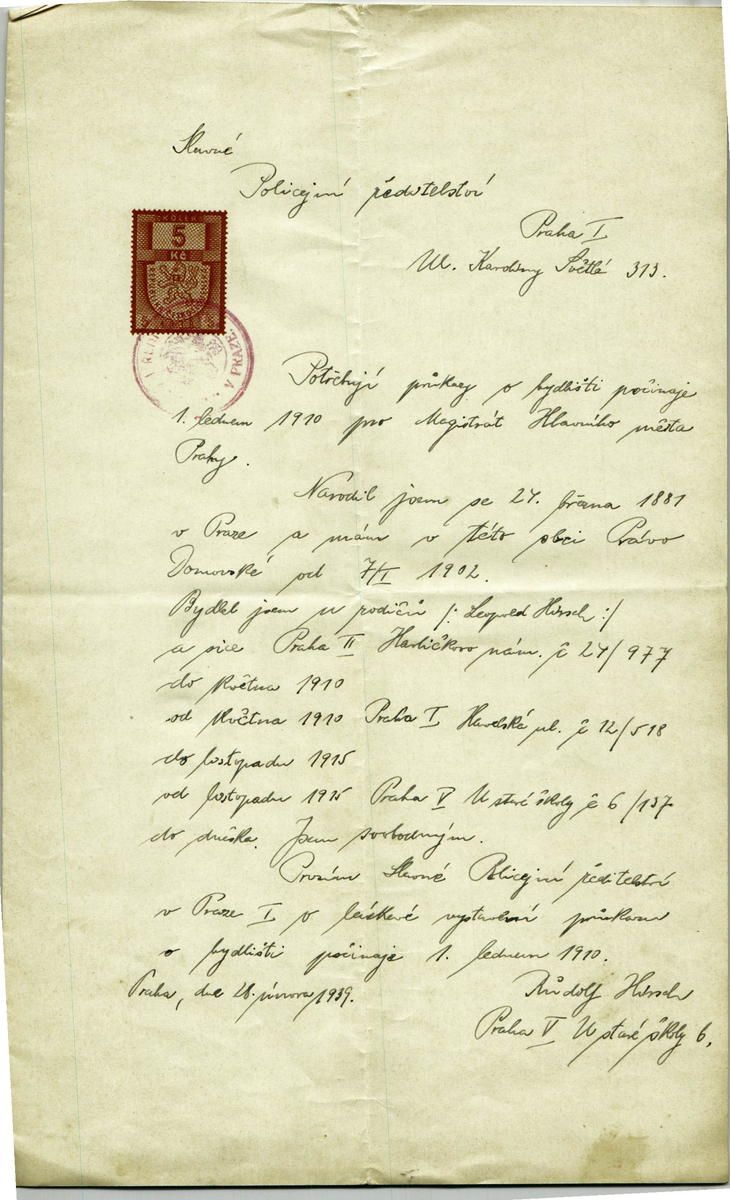 Slavné
Policejní ředitelství
Praha I
Ul. Karoliny Světlé 313.
KOLEK
5
Kč
V PRAZE.
Potřebuji průkazy o bydlišti počínaje
1. lednem 1910 pro Magistrát Hlavního města
Prahy.
Narodil jsem se 27. března 1881
v Praze a mám v této obci Právo
Domovské od 7/I 1902.
Bydlel jsem u rodičů /: Leopold Hirsch :/
a sice Praha II Havlíčkovo nám. č 24/977
do května 1910
od května 1910 Praha I Havelská ul. č 12/518
do listopadu 1915
od listopadu 1915 Praha V U staré školy č 6/137
do dneška. Jsem svobodným.
Prosím Slavné Policejní ředitelství
v Praze I o láskavé vystavení průkazu
o bydlišti počínaje 1. lednem 1910.
Praha, dne 28. února 1939.
Rudolf Hirsch
Praha V U staré školy 6.